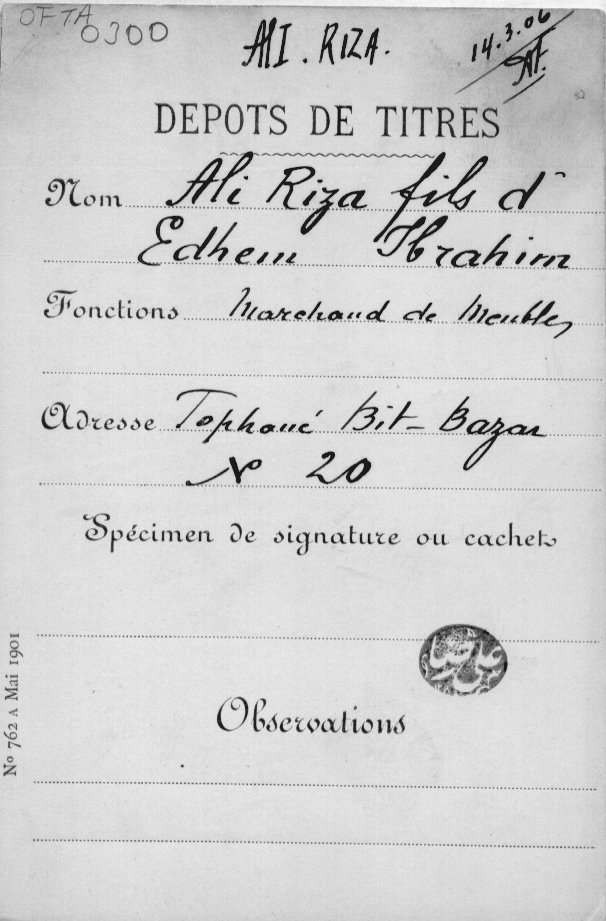 OFTA 0300
ALI. RIZA.
14.3.06
DEPOTS DE TITRES
Nom Ali Riza fils d'
Edhem Ibrahim
Fonctions Marchand de Meubles
Adresse Tophané Bit-Bazar
N 20
Spécimen de signature ou cachet
علی رضا
Observations
Nº 762 A Mai 1901